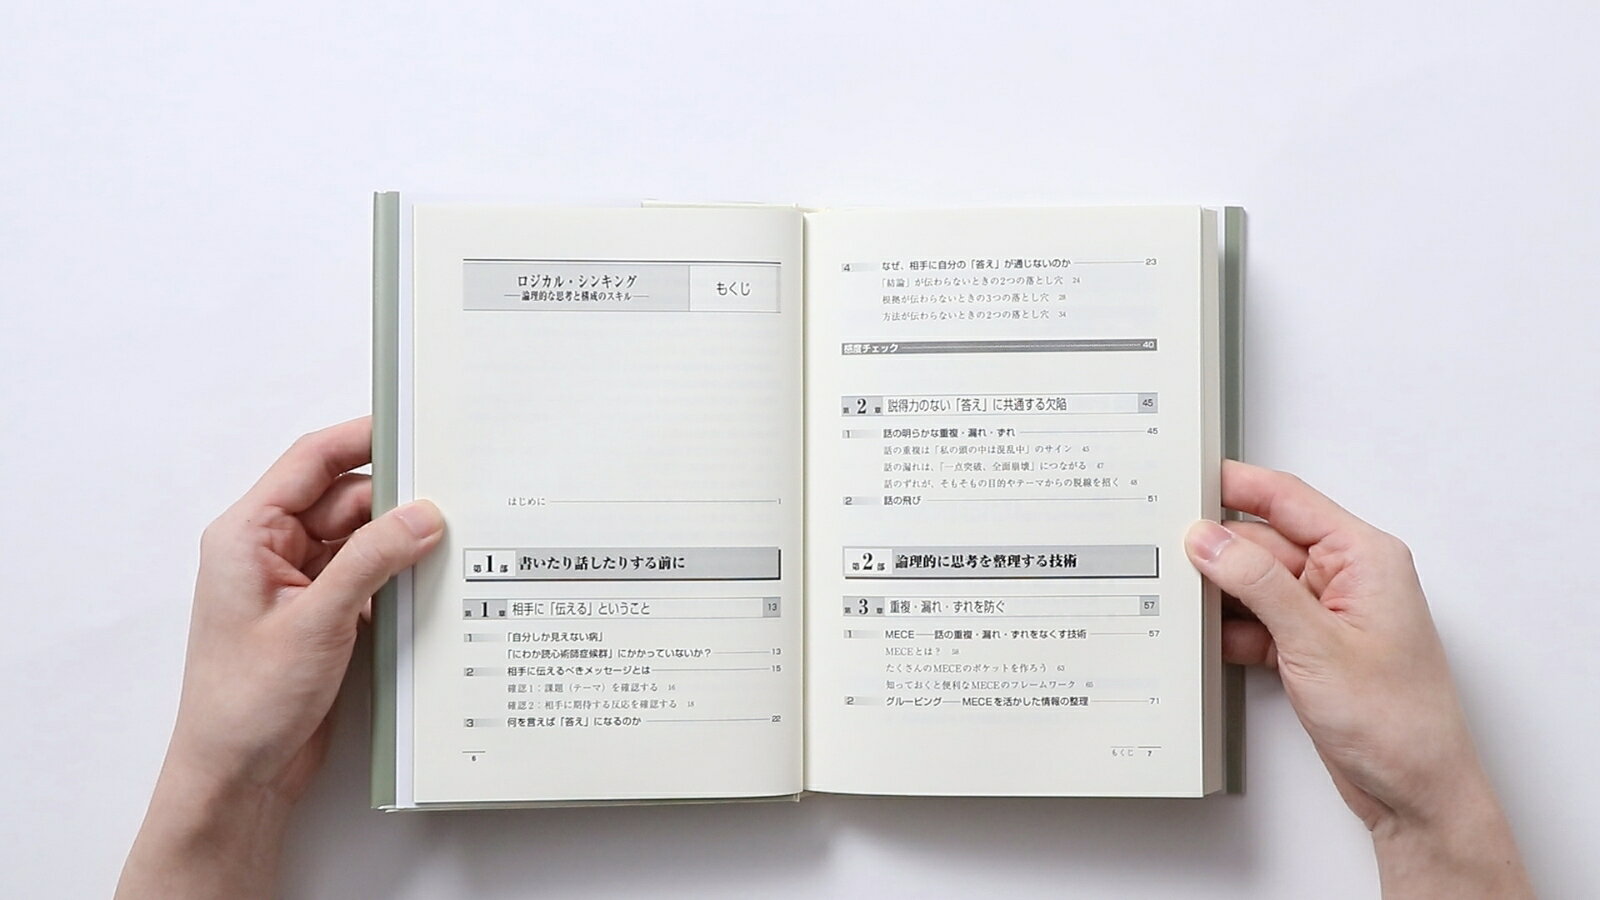 ロジカル・シンキング
――論理的な思考と構成のスキル――
もくじ
はじめに 1
第1部 書いたり話したりする前に
第1章 相手に「伝える」ということ 13
1 「自分しか見えない病」
「にわか読心術師症候群」にかかっていないか? 13
2 相手に伝えるべきメッセージとは 15
確認1:課題(テーマ)を確認する 16
確認2:相手に期待する反応を確認する 18
3 何を言えば「答え」になるのか 22
6
4 なぜ、相手に自分の「答え」が通じないのか 23
「結論」が伝わらないときの2つの落とし穴 24
根拠が伝わらないときの3つの落とし穴 28
方法が伝わらないときの2つの落とし穴 34
感度チェック 40
第2章 説得力のない「答え」に共通する欠陥 45
1 話の明らかな重複・漏れ・ずれ 45
話の重複は「私の頭の中は混乱中」のサイン 45
話の漏れは、「一点突破、全面崩壊」につながる 47
話のずれが、そもそもの目的やテーマからの脱線を招く 48
2 話の飛び 51
第2部 論理的に思考を整理する技術
第3章 重複・漏れ・ずれを防ぐ 57
1 MECE――話の重複・漏れ・ずれをなくす技術 57
MECEとは? 58
たくさんのMECEのポケットを作ろう 63
知っておくと便利なMECEのフレームワーク 65
2 グルーピング――MECEを活かした情報の整理 71
もくじ 7